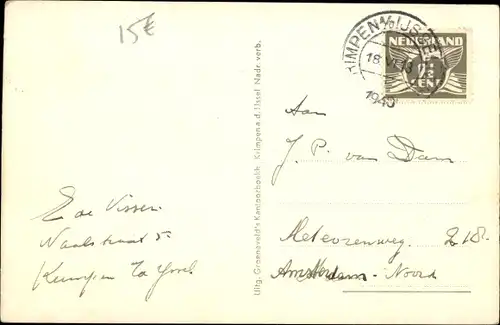 15€
KRIMPEN A/D IJSSEL
18 VI 13
1940
NEDERLAND
CENT
Aan
J. P. van Dam
Meteorenweg. 218.
Amsterdam-Noord
Uitg. Groeneveld's Kantoorboekh. Krimpen a. d. IJssel Nadr. verb.
E de Visser.
5
Krimpen